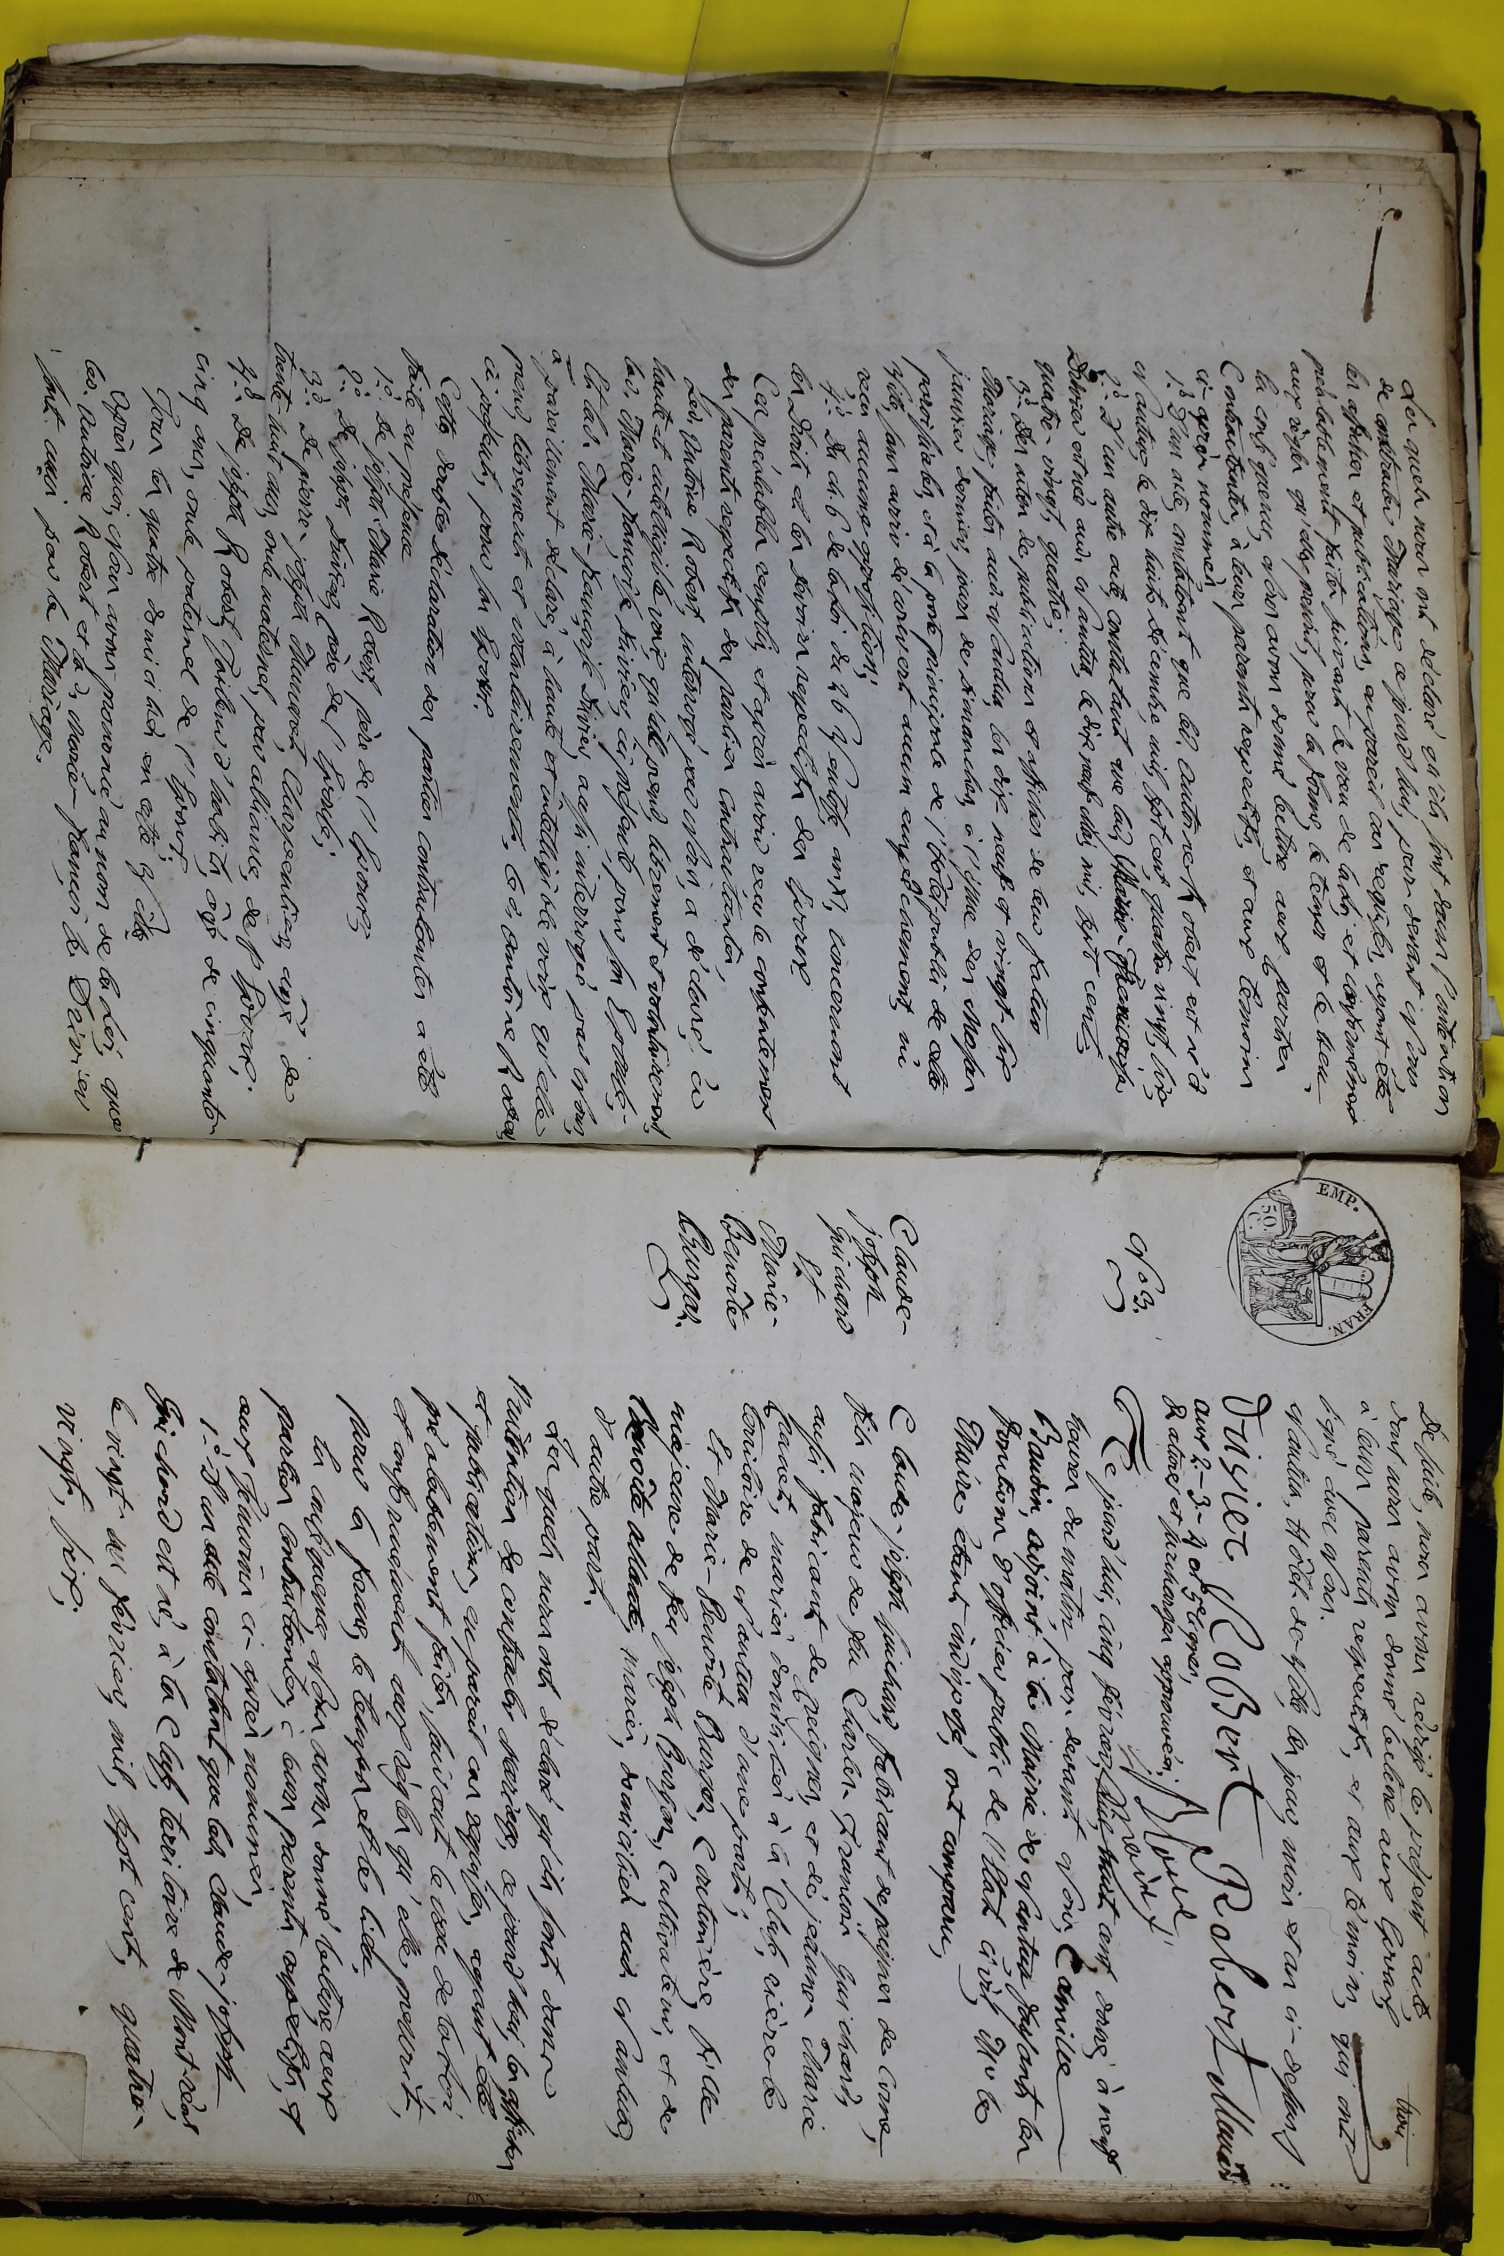 Lesquels nous ont déclaré qu'ils sont dans l'intention
de contracter Mariage ce jourd'hui, par-devant Nous
les affiches et publications, en pareil cas requises, ayant été
préalablement faites suivant le voeu de la loi, et conformément
aux règles qu'elle prescrit, pour la forme, le temps et le lieu,
En conséquence, Nous avons donné lecture aux parties
Contractantes, à leurs parents respectifs, et aux temoins
ci-après nommés,
1.° D'un acte constatant que led. Antoine Robert est né à
Nantua le dix huit décembre, mil sept cent quatre vingt six;
2.° D'un autre acte constatant que lad. Marie-Françoise
Sivrier est née aud. Nantua, le dix neuf mai, mil sept cent
quatre-vingt quatre;
3.° Des actes de publications et affiches de leur futur
Mariage, faites aud. Nantua, les dix neuf et vingt six
janvier dernier, jours de dimanches, à l'issue des Messes
paroissiales, et à la porte principale de l'hôtel public de cette
Ville, sans avoir découvert aucun empêchement, ni
reçu aucune opposition;
4.° Du ch. 6 de la loi du 26 Ventôse an XI, concernant
les Droits et les devoirs respectifs des Epoux
Ces préalables remplis, et après avoir reçu le consentement
des parents respectifs des parties contractantes,
Led. Antoine Robert, interrogé par Nous, a déclaré à
haute et intelligible voix qu'il prend librement et volontairement,
lad. Marie-françoise Sivrier, ci présente, pour son Epouse;
Et lad. Marie-françoise Sivrier, aussi interrogée par Nous,
a pareillement déclaré, à haute et intelligible voix qu'elle
prend, librement et volontairement, led. Antoine Robert,
ci présent, pour son Epoux.
Cette double déclaration des parties contractantes a été
faite en présence
1.° de joseph-Marie Robert, père de l'Epoux;
2.° De joseph Sivrier, père de l'Epouse;
3.° De pierre-joseph Mauvert Charpentier, âgé de
trente-huit ans, oncle maternel, par alliance, de l'Epoux;
4.° De joseph Robert, Tailleur d'habits, âgé de cinquante-
cinq ans, oncle paternel de l'Epoux;
Tous les quatre domiciliés en cette Ville
Après quoi, Nous avons prononcé au nom de la Loi, que
led. Antoine Robert et lad. Marie-françoise Sivrier
sont unis par le Mariage.
trois
De suite, nous avons rédigé le présent acte,
dont nous avons donné lecture aux Epoux,
à leurs parents respectifs, et aux témoins, qui ont
signé avec Nous.
Nantua, Hôtel de Ville, les jour, mois et an ci-dessus
Sivrier RoBert Robert Mauvert
aux 2-3-4 et 5e lignes,
Ratures et surcharges approuvées.
EMP. FRAN.
50 C.
N.° 3.
Claude-
joseph
Guichard
Et
Marie-
Benoite
Burgas.
Ce jourd'hui, cinq février, dix huit cent onze, à neuf
heures du matin, par-devant Nous, Camille
Baudin, adjoint à la Mairie de Nantua, faisant les
fonctions d'officier public de l'Etat civil, Mr. le
Maire étant indisposé, ont comparu,
Claude-joseph Guichard, fabricant de peignes de Corne,
fils majeur de feu Charles-François Guichard,
aussi fabricant de peignes, et de jeanne-Marie
mariés domiciliés à la Cluse,
territoire de Nantua d'une part;
Et Marie-Benoite Burgas, Couturière, fille
majeure de feu joseph Burgas, Cultivateur, et de
Benoîte mariés, domiciliés aud. Nantua,
d'autre part.
Lesquels nous ont déclaré qu'ils sont dans
l'intention de contracter Mariage, ce jourd'hui, les affiches
et publications, en pareil cas requises, ayant été
préalablement faites, suivant le voeu de la loi,
et conformément aux règles qu'elle prescrit,
pour la forme, le temps et le lieu,
En conséquence, Nous avons donné lecture aux
parties contractantes, à leurs parents respectifs, et
aux Témoins ci-après nommés,
1.° D'un acte constatant que led. Claude-joseph
Guichard est né, à la Cluse, territoire de Montréal,
le vingt-un février, mil, sept cent, quatre-
vingt, six;